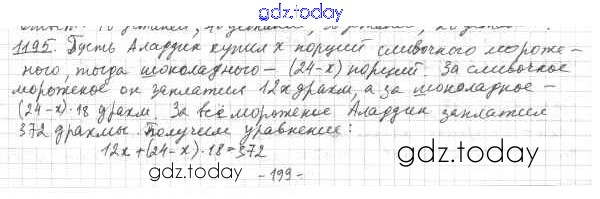 gdz.today
1195. Пусть Аладдин купил x порций сливочного мороже-
ного, тогда шоколадного – (24-x) порций. За сливочное
мороженое он заплатил 12x драхм, а за шоколадное –
(24-x)·18 драхм. За всё мороженое Аладдин заплатил
372 драхмы. Получим уравнение:
12x+(24-x)·18=372
gdz.today
gdz.today
- 199 -